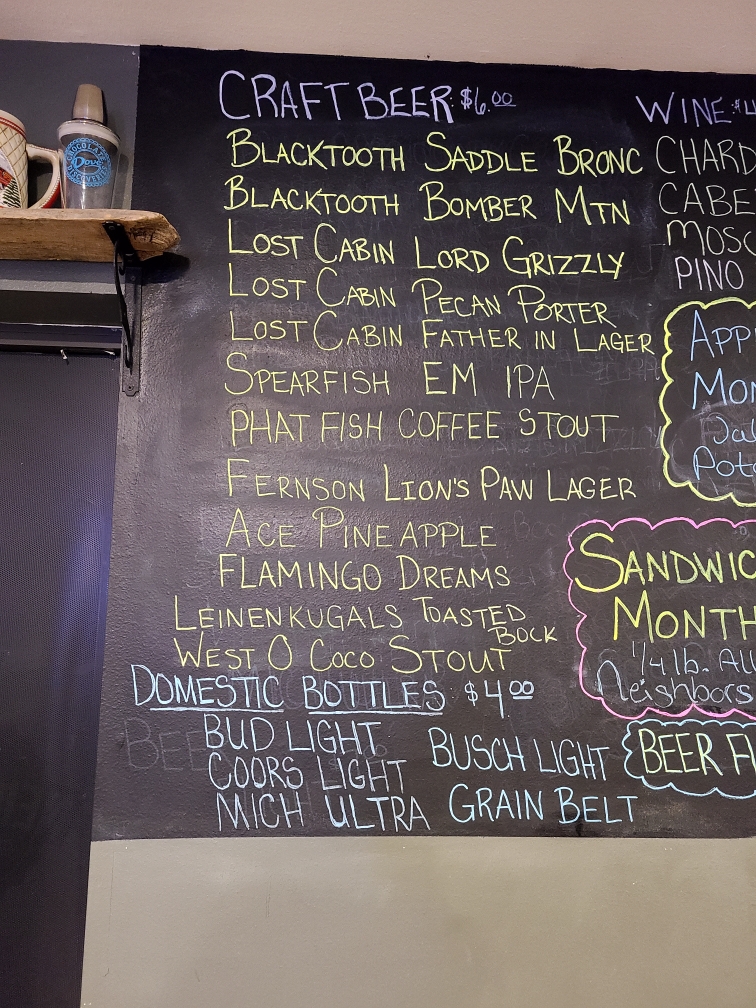 CRAFT BEER: $6.00
BLACKTOOTH SADDLE BRONC
BLACKTOOTH BOMBER MTN
LOST CABIN LORD GRIZZLY
LOST CABIN PECAN PORTER
LOST CABIN FATHER IN LAGER
SPEARFISH EM IPA
PHAT FISH COFFEE STOUT
FERNSON LION'S PAW LAGER
ACE PINEAPPLE
FLAMINGO DREAMS
LEINENKUGALS TOASTED
BOCK
WEST O COCO STOUT
DOMESTIC BOTTLES: $4.00
BUD LIGHT
COORS LIGHT
MICH ULTRA
BUSCH LIGHT
GRAIN BELT
WINE:
CHARD
CABE
MOSC
PINO
APP
MON
Jal
Pota
SANDWIC
MONTH
1/4 lb. All
Neighbors
BEER FL
CHOCOLATE
Dove
DISCOVERIES